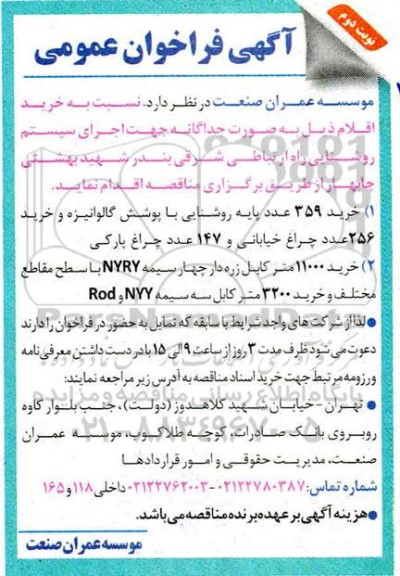 نوبت دوم
آگهی فراخوان عمومی
موسسه عمران صنعت در نظر دارد، نسبت به خرید
اقلام ذیل به صورت جداگانه جهت اجرای سیستم
روشنایی راه ارتباطی شرقی بندر شهید بهشتی
چابهار از طریق برگزاری مناقصه اقدام نماید.
۱) خرید ۳۵۹ عدد پایه روشنایی با پوشش گالوانیزه و خرید
۲۵۶ عدد چراغ خیابانی و ۱۴۷ عدد چراغ پارکی
۲) خرید ۱۱۰۰۰ متر کابل زره دار چهار سیمه NYRY با سطح مقاطع
مختلف و خرید ۳۲۰۰ متر کابل سه سیمه NYY و Rod
● لذا از شرکت های واجد شرایط با سابقه که تمایل به حضور در فراخوان را دارند
دعوت می شود ظرف مدت ۳ روز از ساعت ۹ الی ۱۵ با در دست داشتن معرفی نامه
و رزومه مرتبط جهت خرید اسناد مناقصه به آدرس زیر مراجعه نمایند:
● تهران - خیابان شهید کلاهدوز (دولت)، جنب بلوار کاوه
روبروی بانک صادرات کوچه طلاکوب، موسسه عمران
صنعت، مدیریت حقوقی و امور قراردادها
شماره تماس: ۰۲۱۲۲۷۸۰۳۸۷-۰۲۱۲۲۷۶۲۰۰۳ داخلی ۱۱۸ و ۱۶۵
● هزینه آگهی بر عهده برنده مناقصه می باشد.
موسسه عمران صنعت